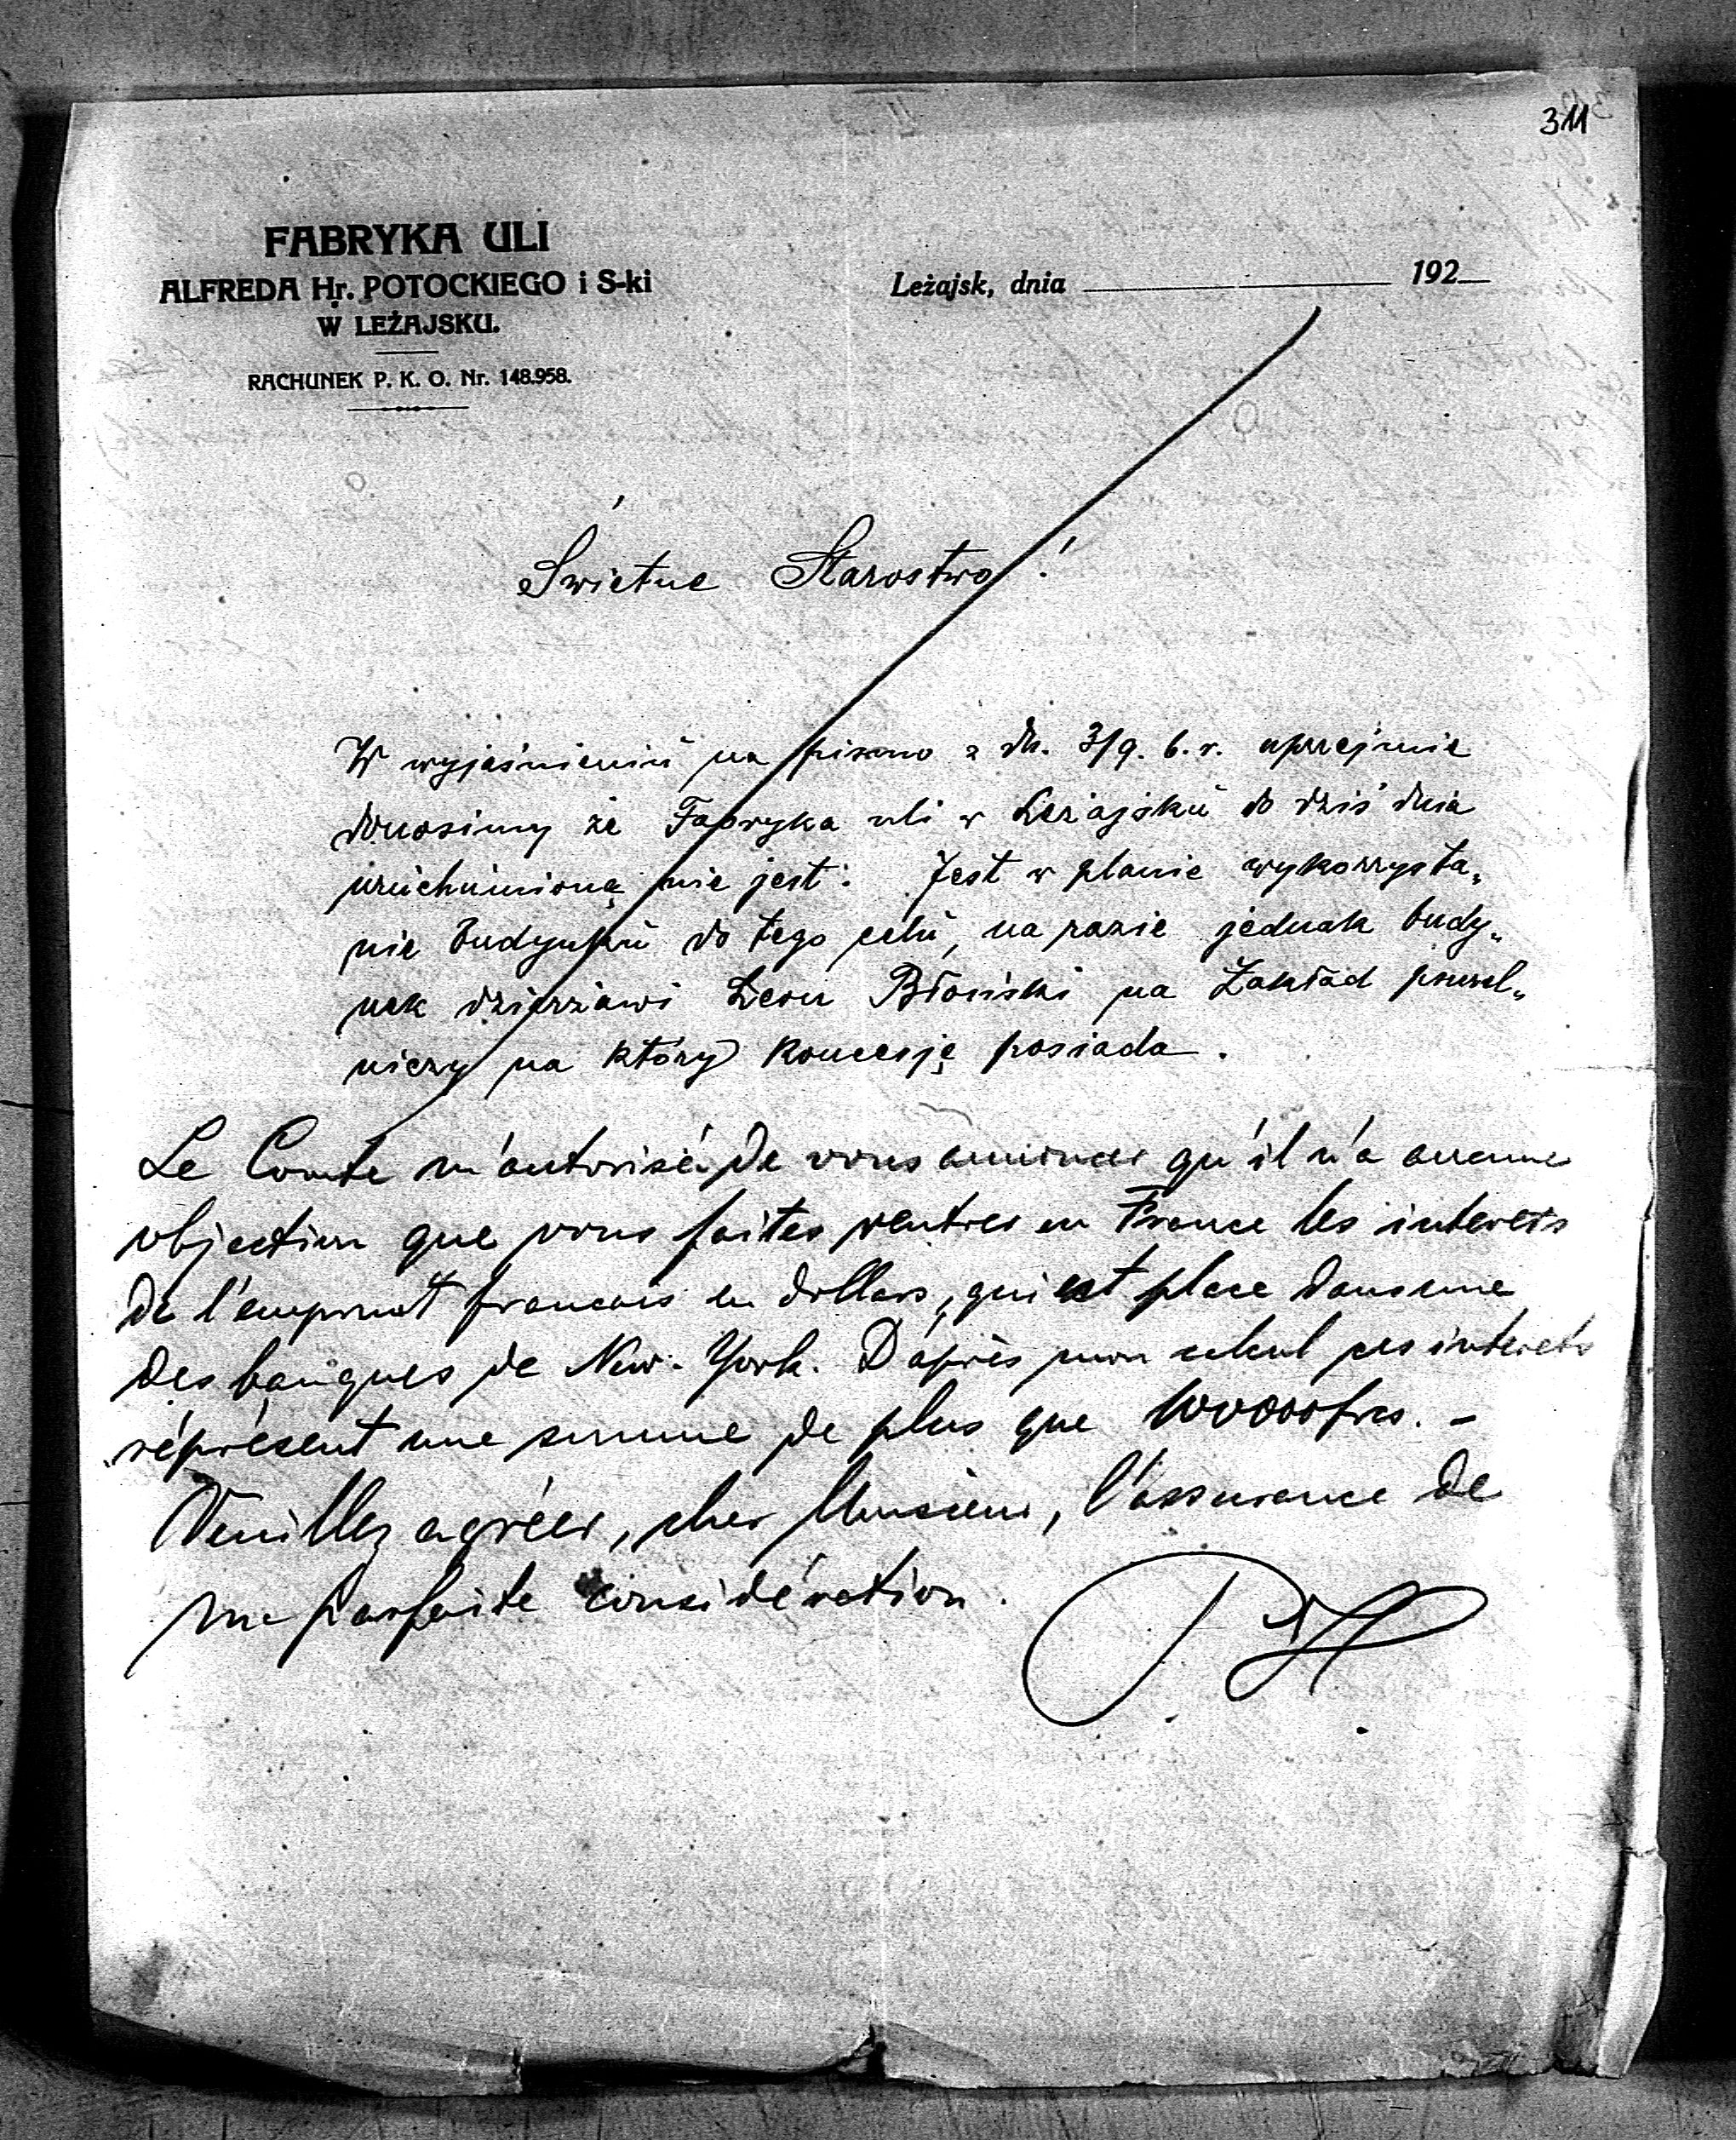 311
FABRYKA ULI
ALFREDA Hr. POTOCKIEGO i S-ki
W LEŻAJSKU.
RACHUNEK P. K. O. Nr. 148.958.
Leżajsk, dnia 192
Świetne Starostwo!
W wyjaśnieniu na pismo z dn. 3/9. b. r. uprzejmie
donosimy że Fabryka uli w Leżajsku do dziś dnia
uruchomioną nie jest. Jest w planie wykorzysta„
nie budynku do tego celu, na razie jednak budy„
nek dzierżawi Leon Błoński na Zakład
niczy na który koncesję posiada.
Le Comte m'autorisé de vous annoncer qu'il n'a aucune
objection que vous faites rentrer en France les interets
de l'emprunt francais en dollars, qui est place dans une
des banques de New-York. D'après mon calcul ces interets
répresent une somme de plus que 100000 frcs. -
Veuillez agréer, cher Monsieur, l'assurance de
ma parfaite considération.